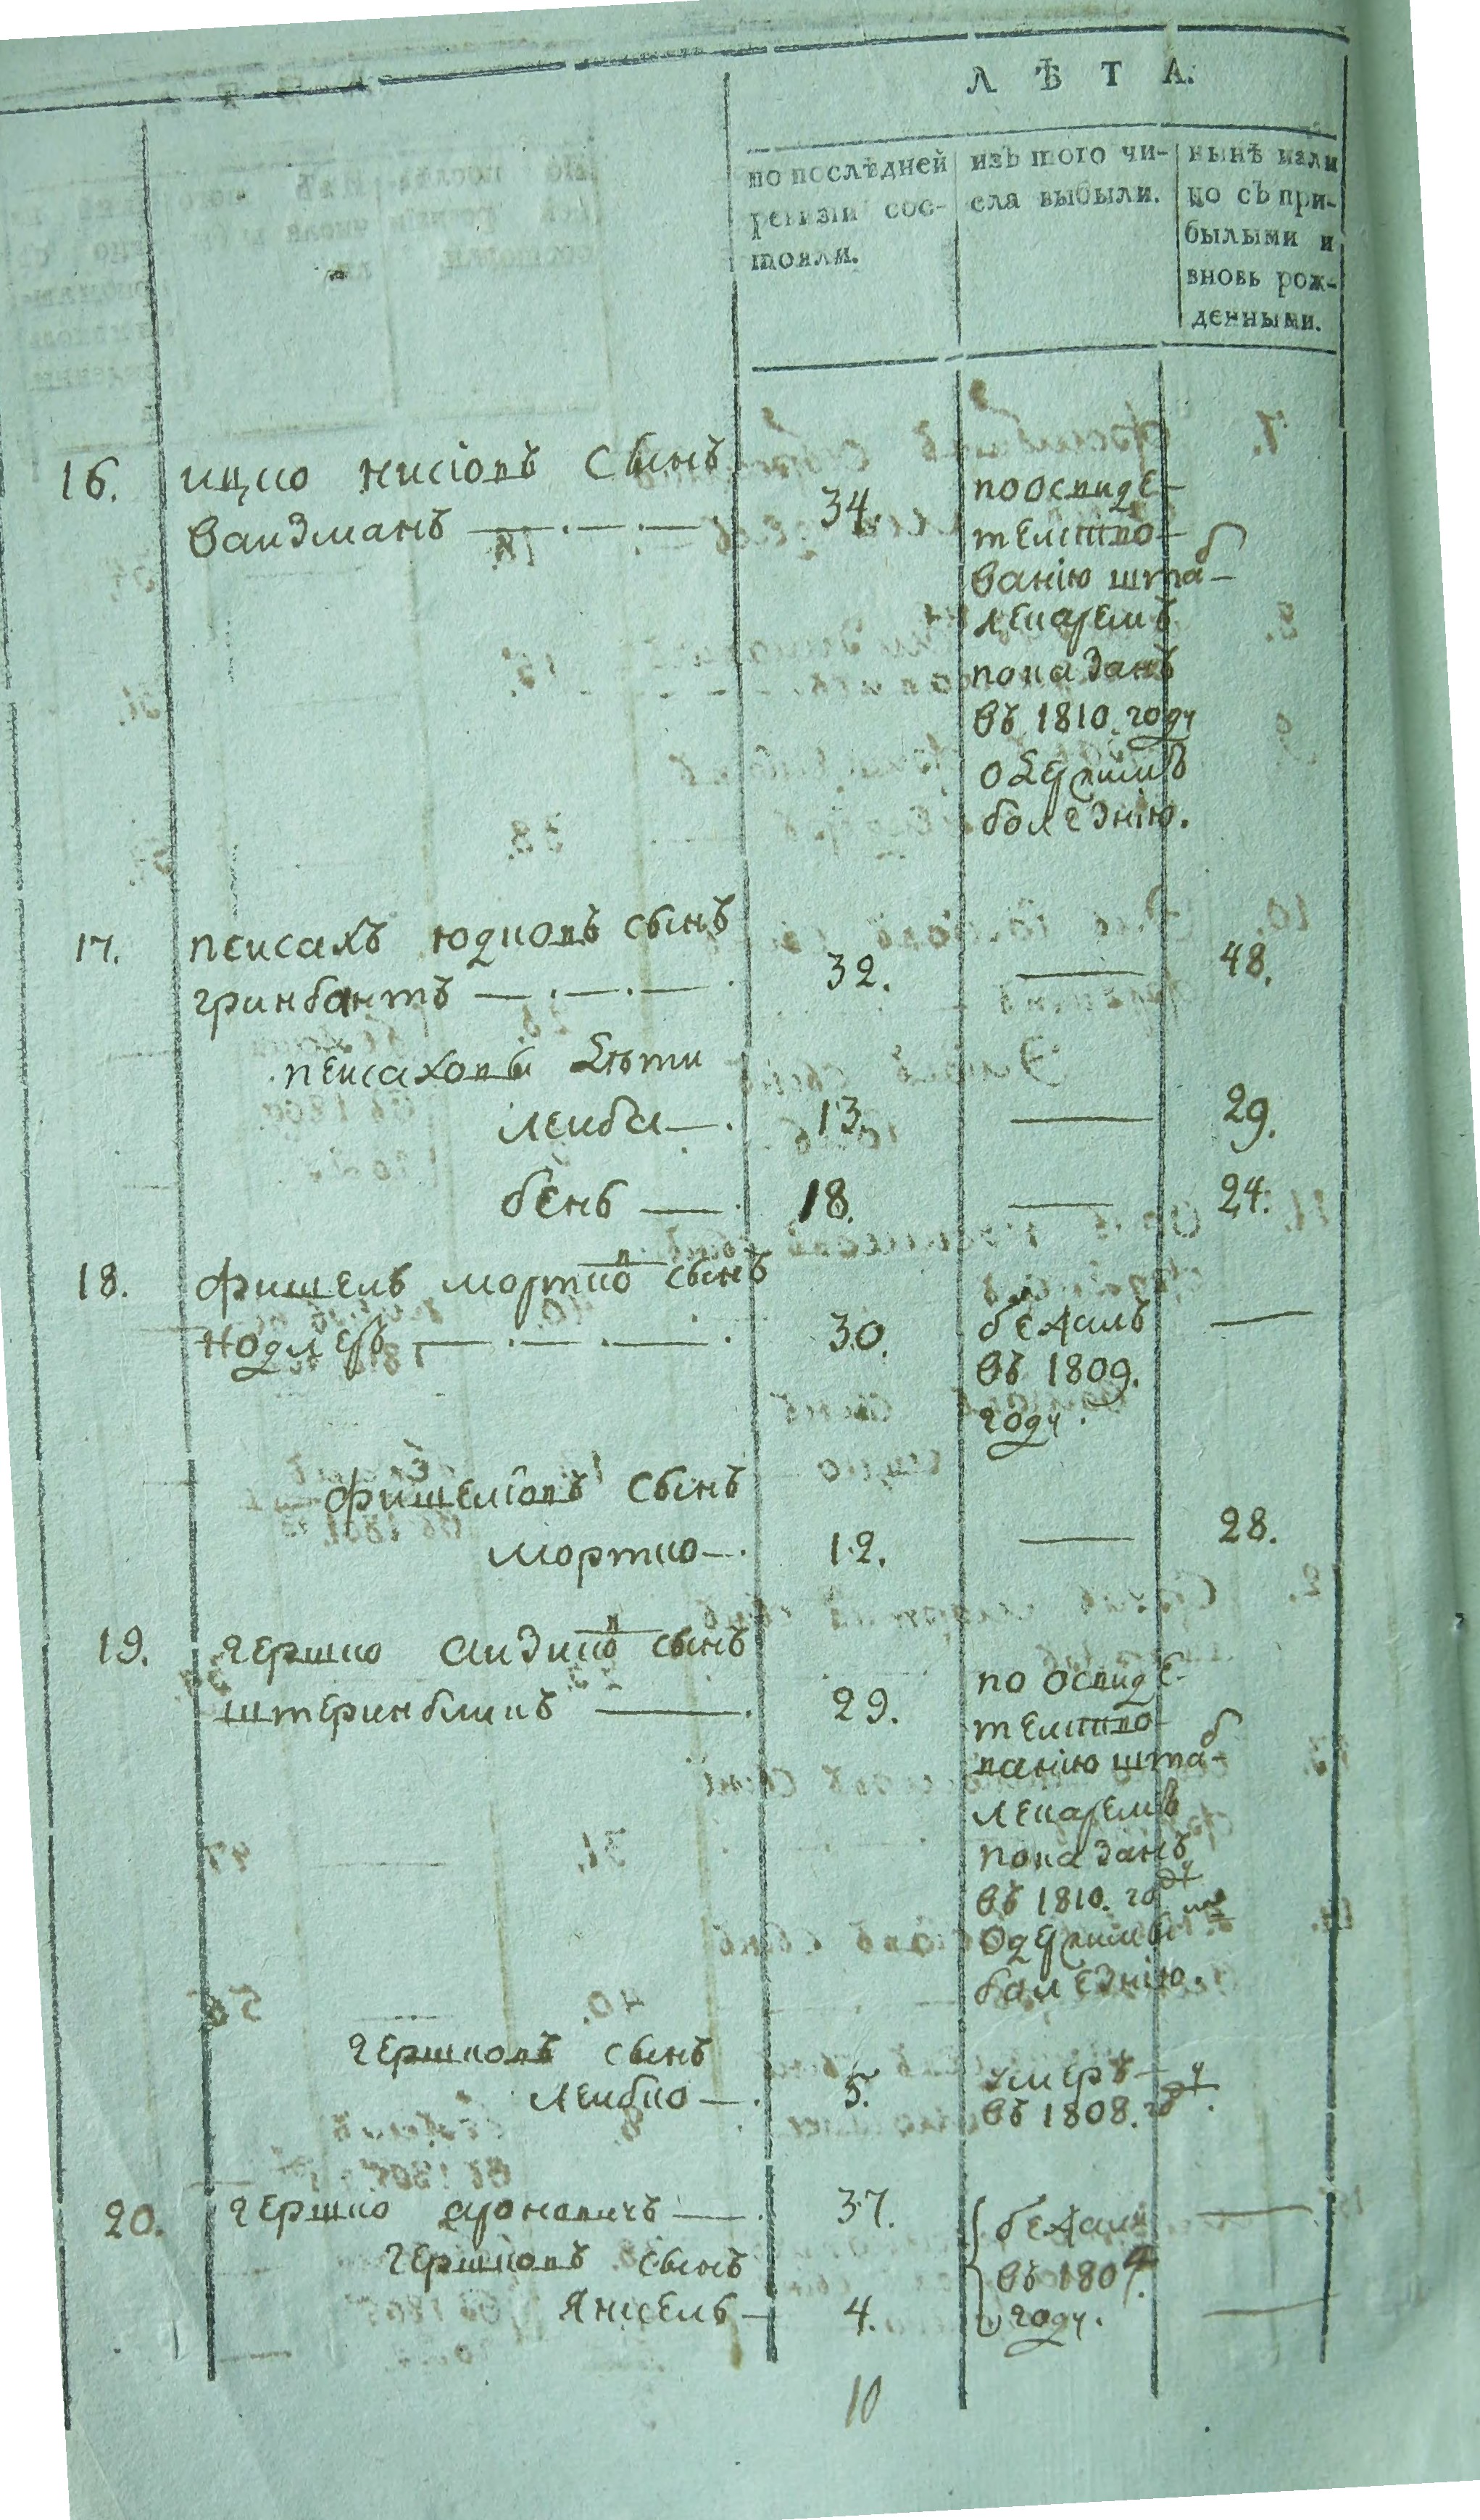 ЛѢТА.
по послѣдней ревизіи состояли.
изъ того числа выбыли.
нынѣ нали цо съ прибылыми и вновь рожденными.
16. ицко нисіовъ сынъ
ваизманъ 34.
по освиде-
телство-
ванію штаб-
лекаремъ
показанъ
въ 1810. году
одержимъ
болезнію.
17. пеисахъ юдковъ сынъ
гринбантъ 32. — 48.
пеисаховы дѣти
леиба — 13. — 29.
бень — 18. — 24.
18. фишель мортковъ сынъ
нодлеръ 30. бежалъ —
въ 1809.
году.
фишеліовъ сынъ
мортко — 12. — 28.
19. гершко аизиковъ сынъ
штеринбликъ — 29.
по освиде-
телство-
ванію штаб-
лекаремъ
показанъ
въ 1810. году
одержимъ
болезнію.
гершковъ сынъ
леибко — 5. умеръ
въ 1808. году.
20. гершко ароновичъ — 37. бежали —
гершковъ сынъ въ 1804.
янкель — 4. году. —
10